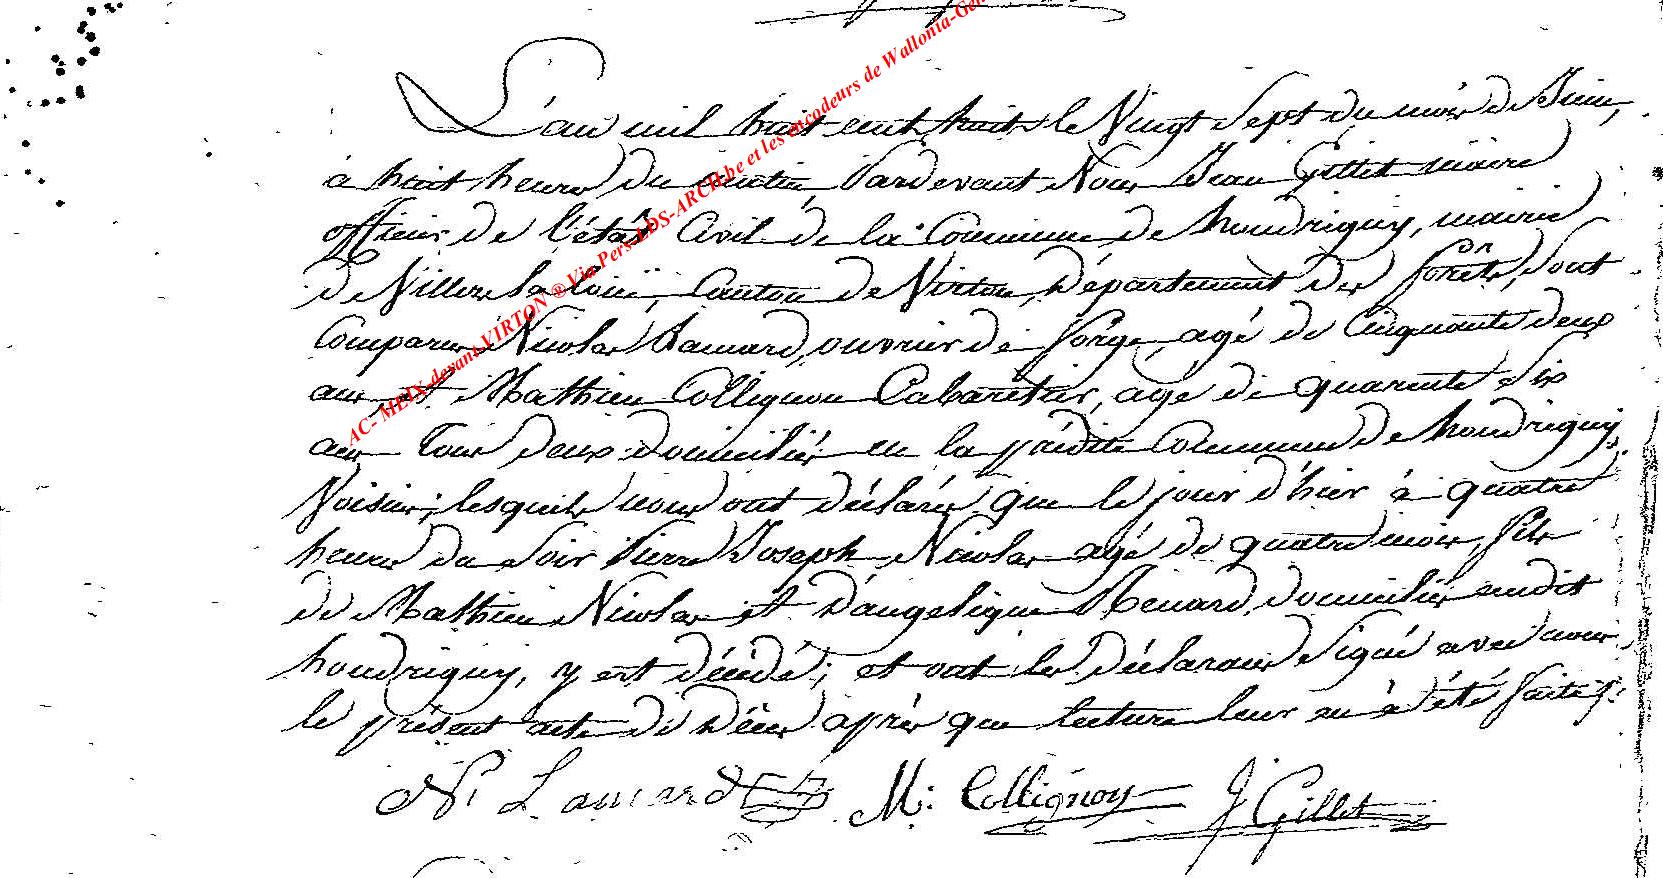 L'an mil huit cent huit le Vingt Sept du mois de Juin,
à huit heures du matin, Pardevant Nous Jean Gillet maire
officier de l'état Civil de la Commune de houdrigny, mairie
de Villers la loüe, Canton de Virton, Département des forêts, Sont
Comparus Nicolas Lamard, ouvrier de forge, agé de Cinquante deux
ans et Mathieu Collignon Cabaretier, agé de quarante Six
ans Tous deux domiciliés en la prédite Commune de houdrigny
Voisins; lesquels nous ont déclarés que le jour d'hier à quatre
heures du Soir Pierre Joseph Nicolas agé de quatre mois, fils
de Mathieu Nicolas et D'angelique Renard, domiciliés audit
houdrigny, y est décédé; et ont les Déclarans Signé avec nous
le présent acte de Décès après que lecture leur en à été faite
N Lamard M: Collignon J Gillet
AC- MEIX-devant-VIRTON ® Via Pers-LDS-ARCH.be et les encodeurs de Wallonia-Gen